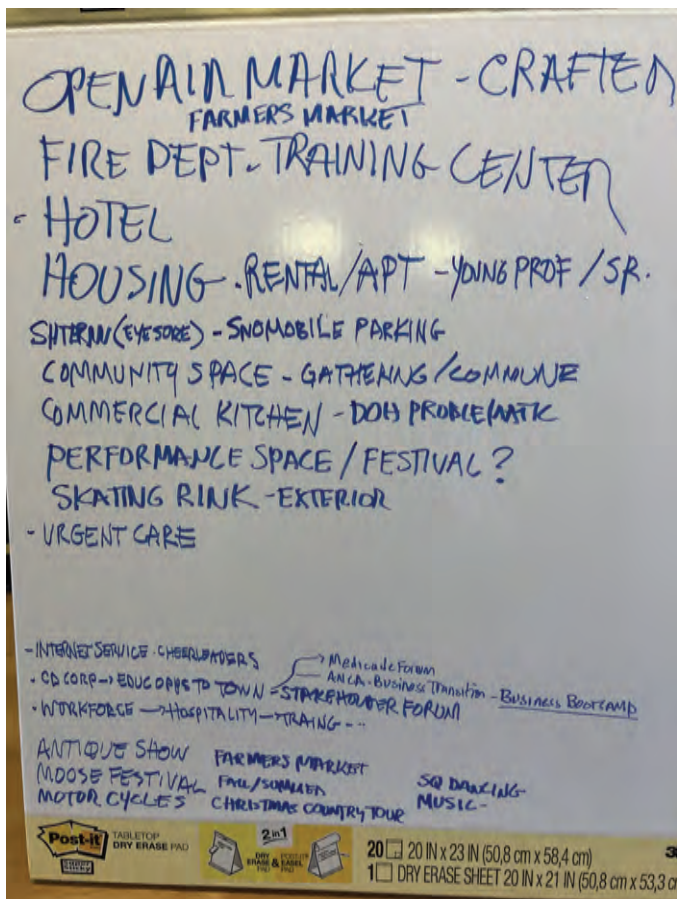 OPEN AIR MARKET - CRAFTER
FARMERS MARKET
FIRE DEPT. TRAINING CENTER
- HOTEL
HOUSING - RENTAL/APT - YOUNG PROF / SR.
(EYESORE) - SNOMOBILE PARKING
COMMUNITY SPACE - GATHERING / COMMUNE
COMMERCIAL KITCHEN - DOH PROBLEMATIC
PERFORMANCE SPACE / FESTIVAL ?
SKATING RINK - EXTERIOR
- URGENT CARE
- INTERNET SERVICE - CHEERLEADERS
→ Medicade Forum
ANCA - Business Transition - Business Bootcamp
- CD CORP → EDUC OPPS TO TOWN = STAKEHOLDER FORUM
- WORKFORCE → HOSPITALITY → TRAING - - -
ANTIQUE SHOW FARMERS MARKET
MOOSE FESTIVAL FALL/SUMMER SQ DANCING
MOTOR CYCLES CHRISTMAS COUNTRY TOUR MUSIC -
Post-it TABLETOP DRY ERASE PAD
Super Sticky
2 in 1
DRY ERASE PAD & POST-IT EASEL PAD
20 20 IN x 23 IN (50,8 cm x 58,4 cm)
1 DRY ERASE SHEET 20 IN x 21 IN (50,8 cm x 53,3 c